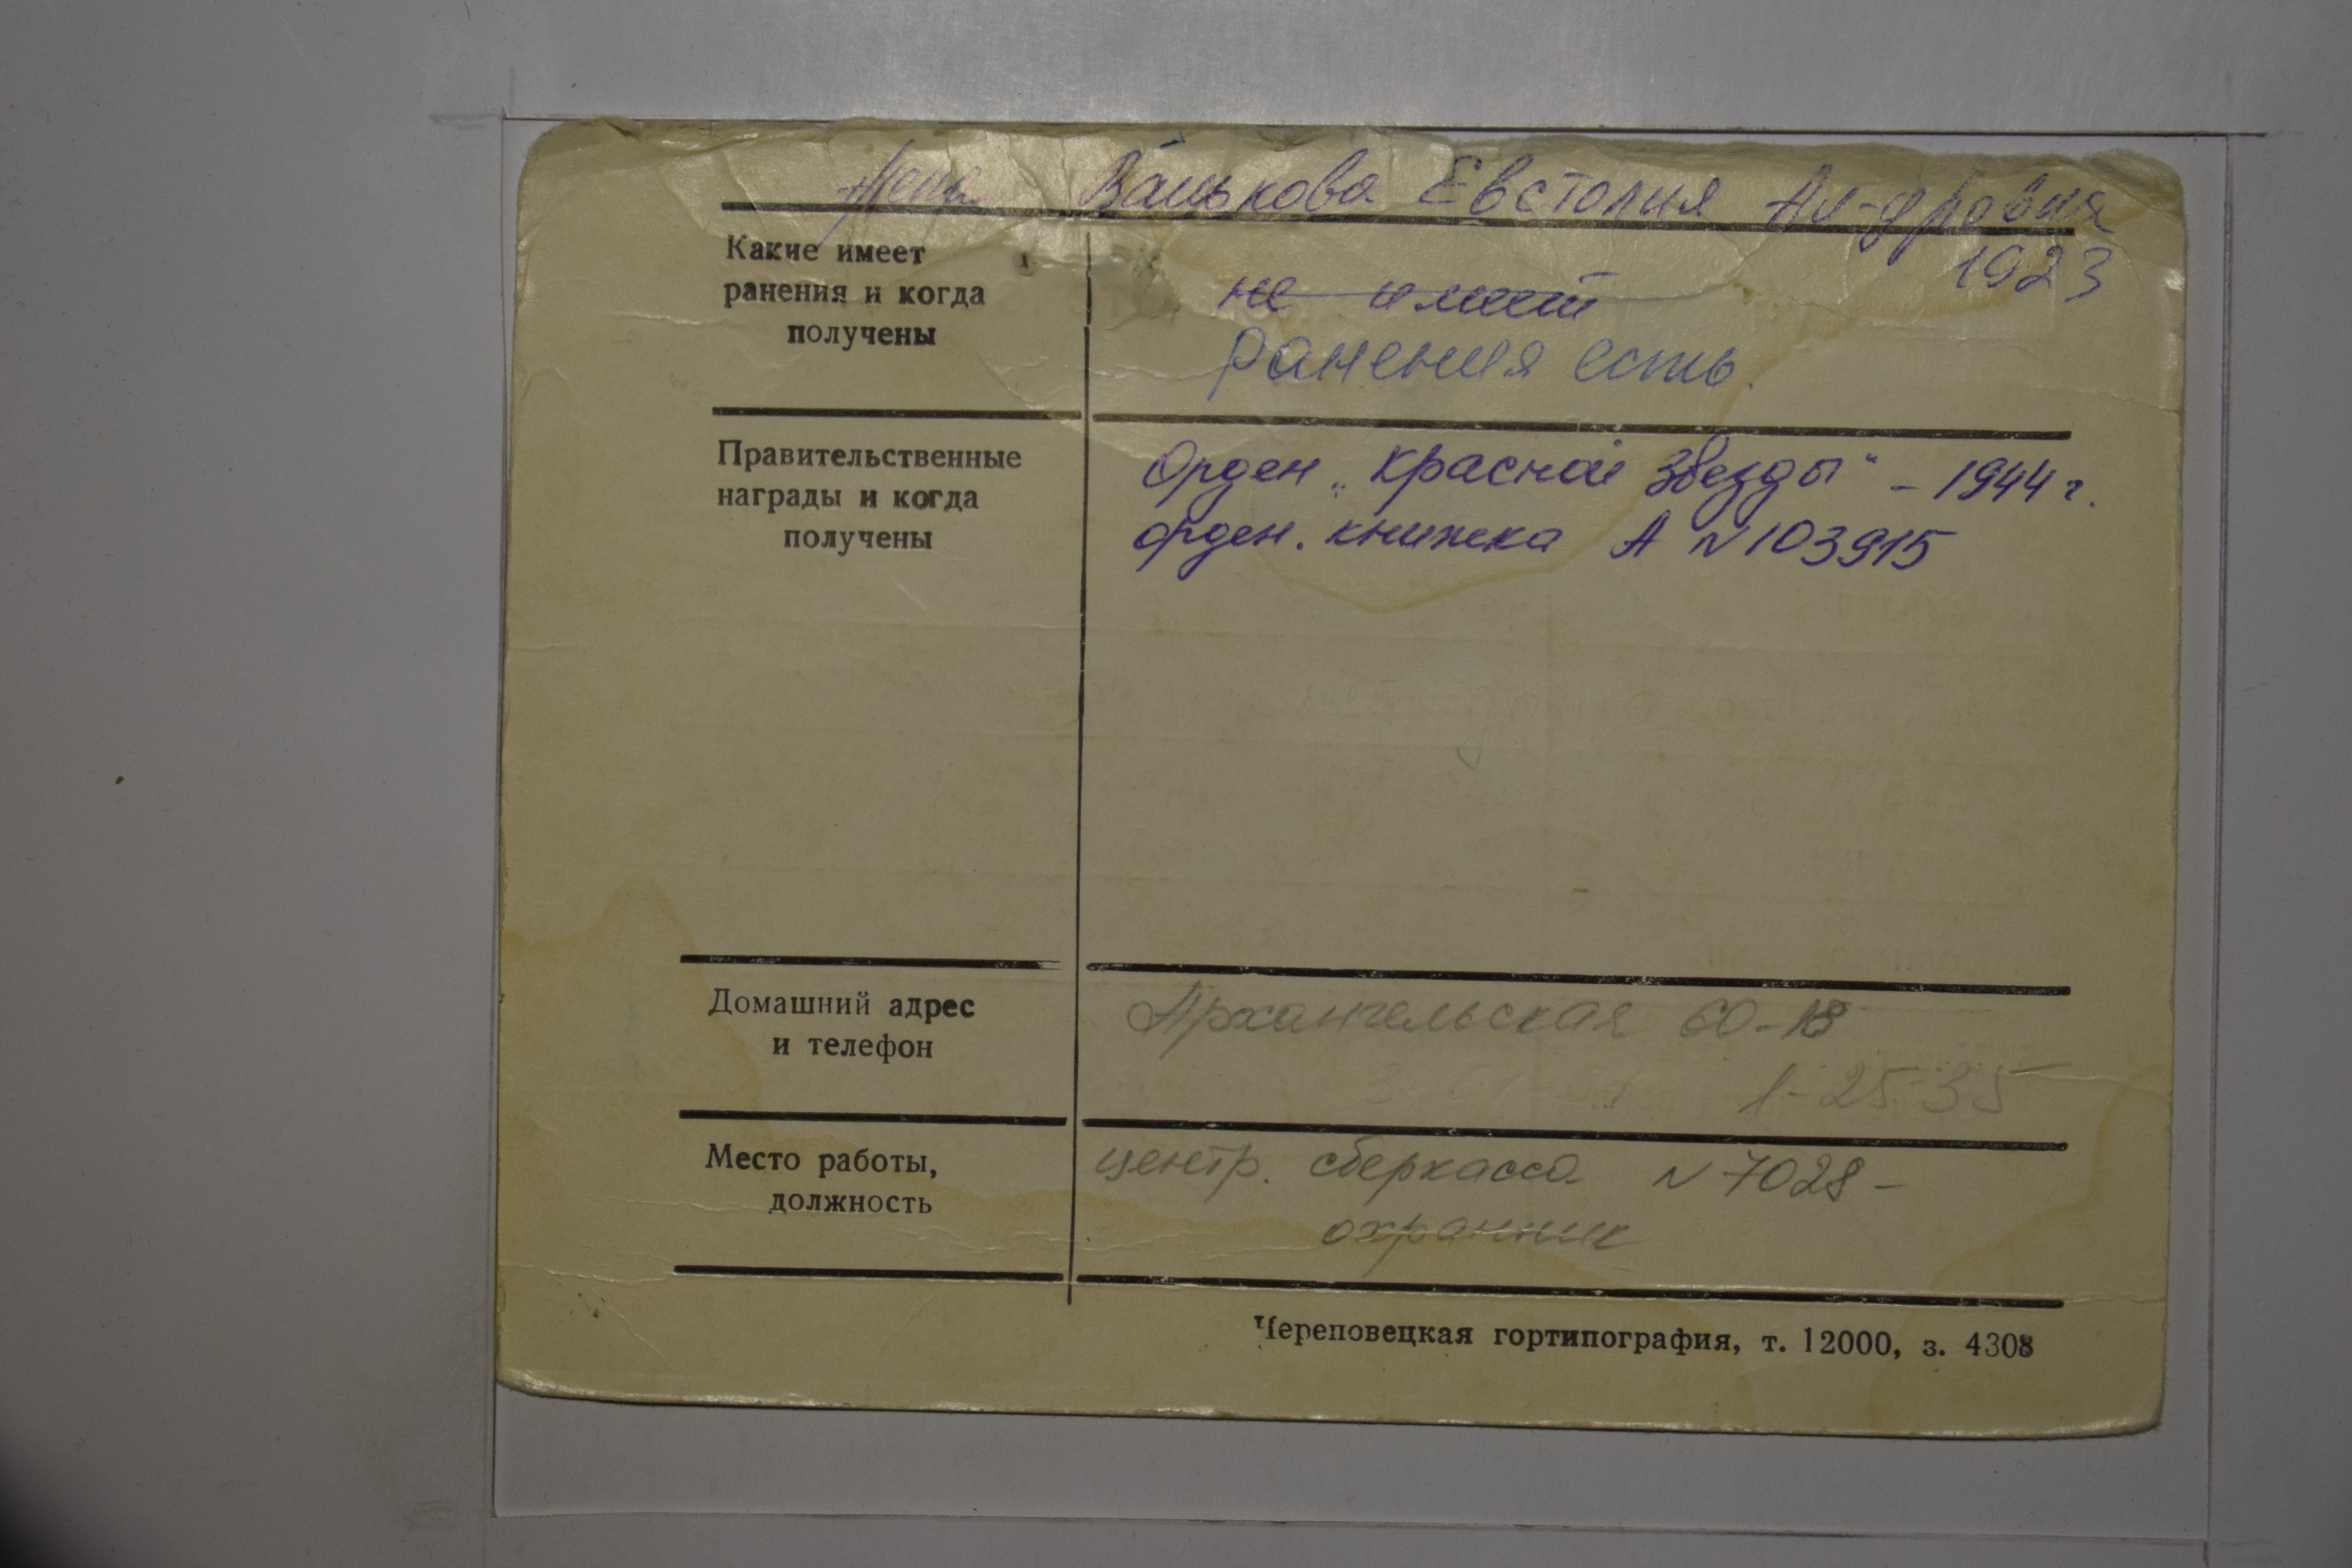 Жена Ванькова Евстолия Ал-дровна
1923
Какие имеет
ранения и когда
получены
не имеет
Ранения есть.
Правительственные
награды и когда
получены
Орден „Красной Звезды" - 1944 г.
орден. книжка А №103915
Домашний адрес
и телефон
Архангельская 60-18
1-25-35
Место работы,
должность
центр. сберкасса №7028 -
охранник
Череповецкая гортипография, т. 12000, з. 4308